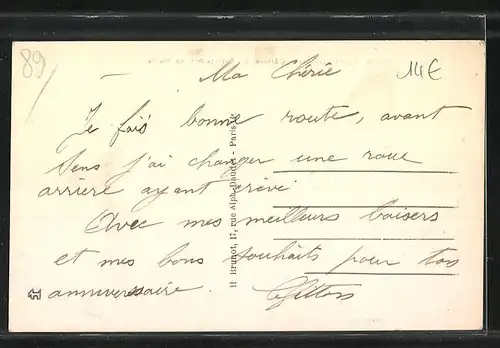 89
14€
Ma Chérie
Je fais bonne route, avant
Sens j'ai changer une roue
arrière ayant crêvé
Avec mes meilleurs baisers
et mes bons souhaits pour ton
anniversaire.
H Brunot, 17, rue Alph. Daudet - Paris